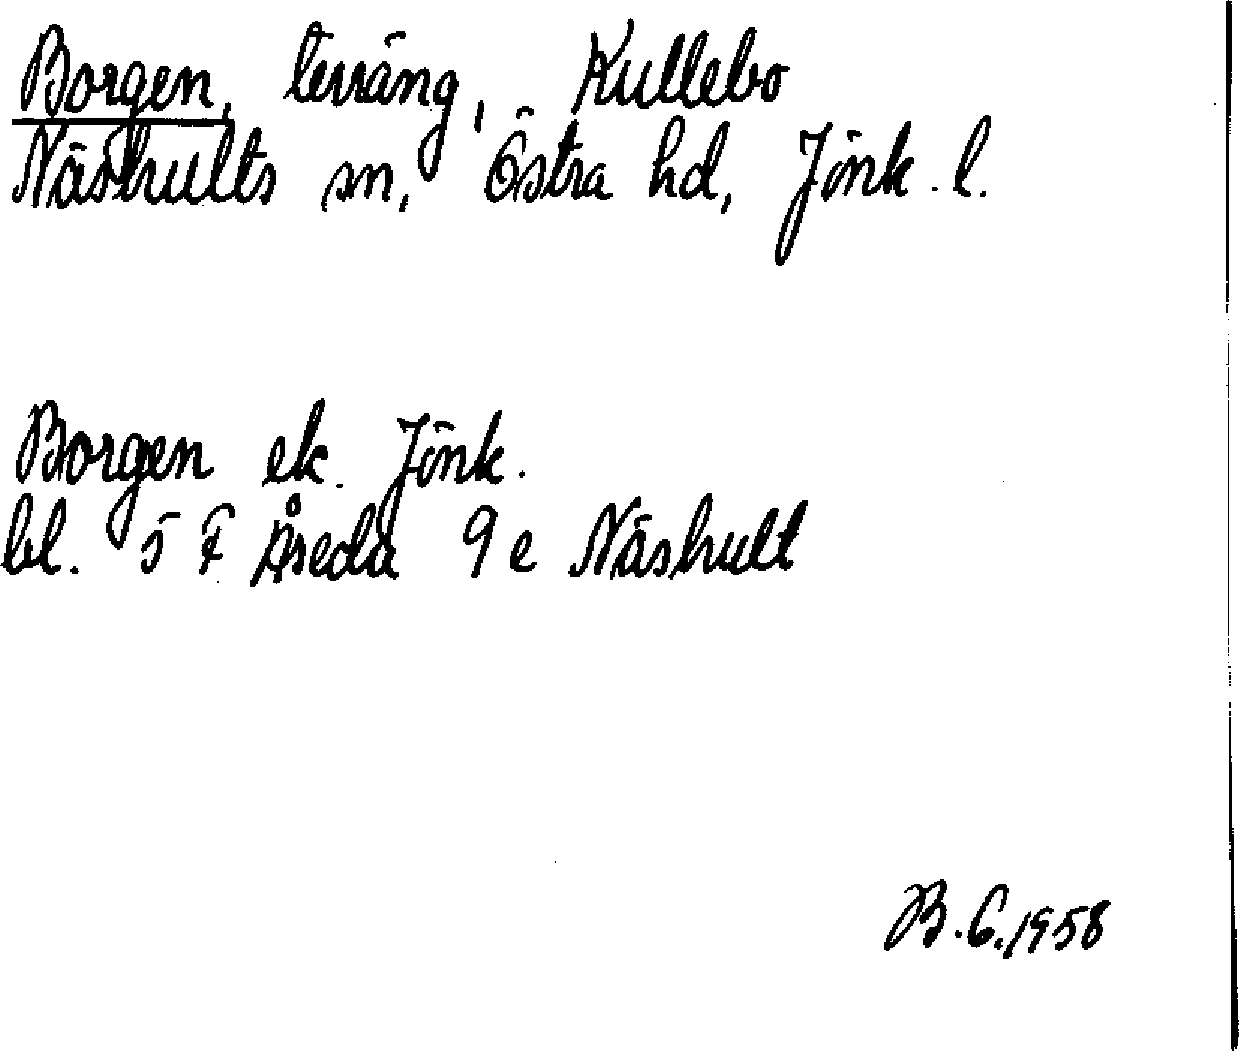 Borgen, terräng, Kullebo
Näshults sn, Östra hd, Jönk. l.
Borgen ek. Jönk.
bl. 5 F Åseda 9 e Näshult
B.G.1958